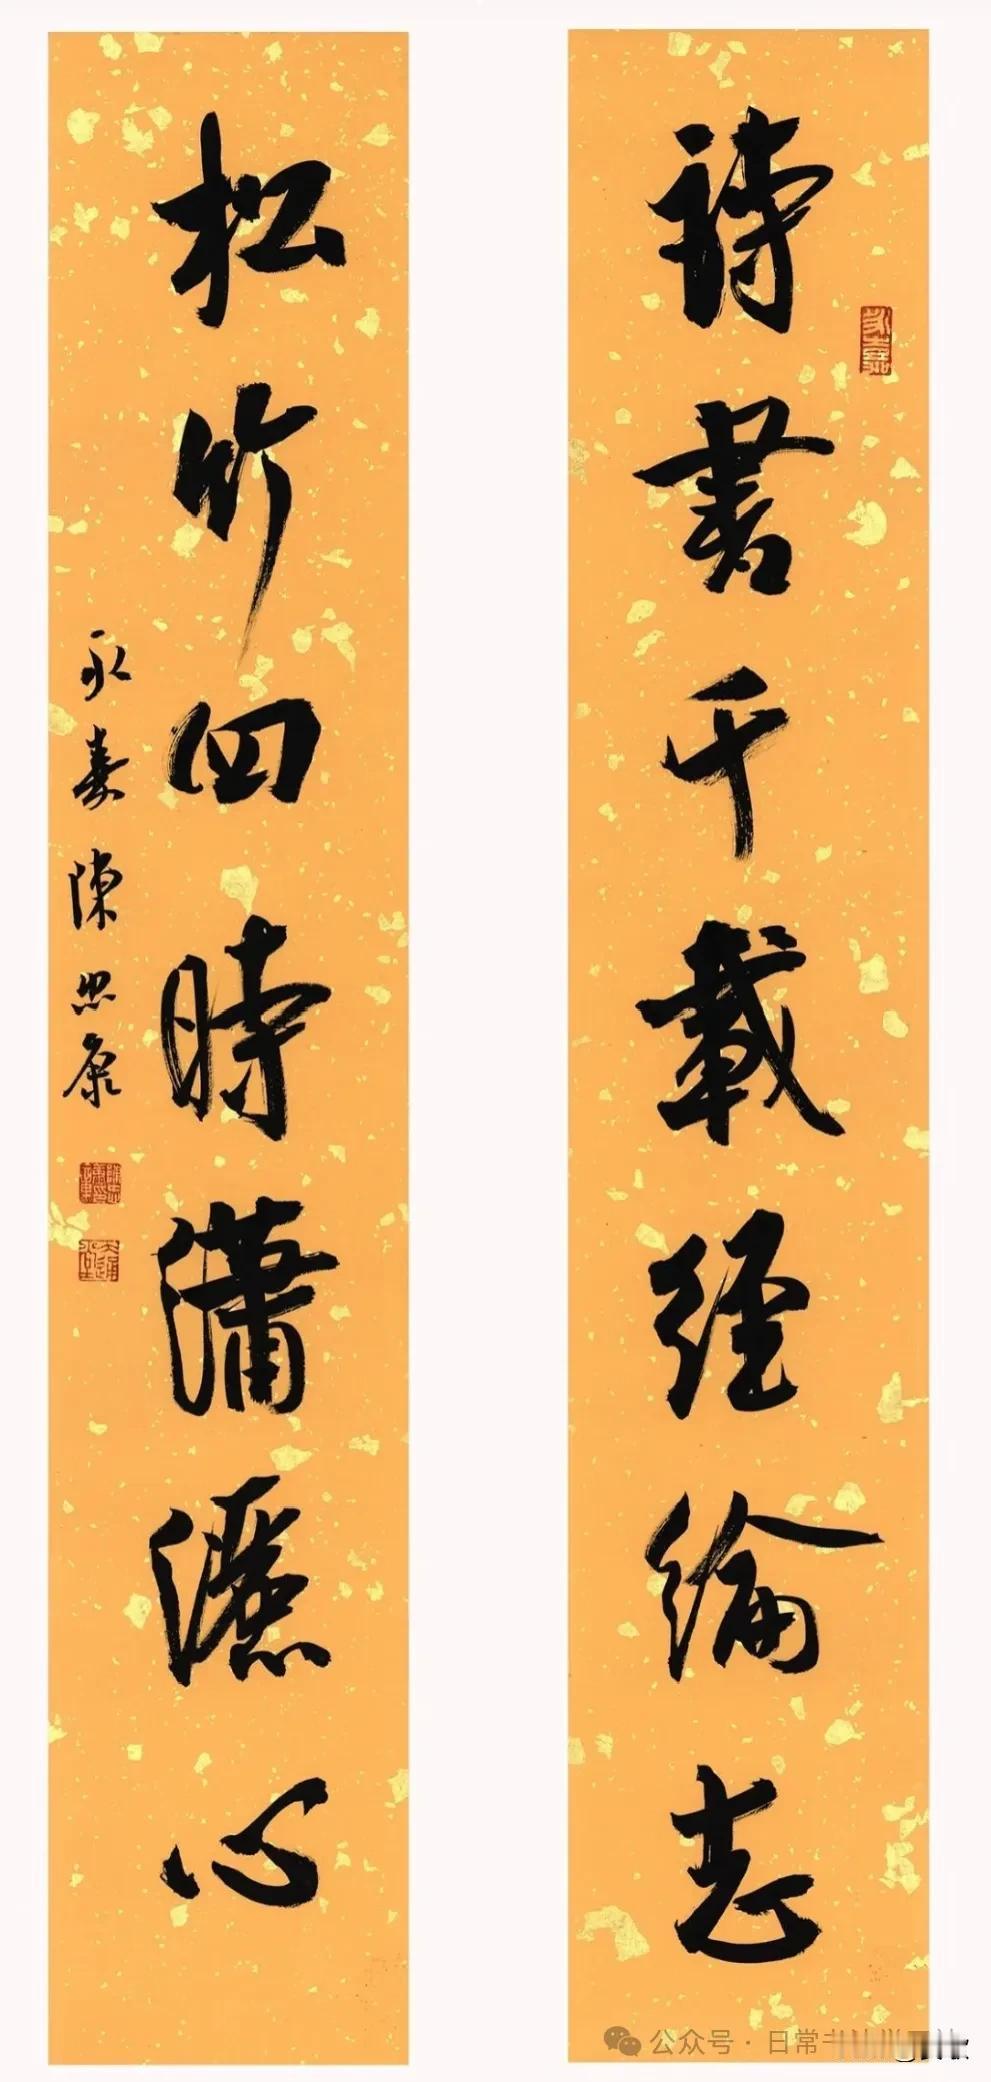 詩書千載經綸志
松竹四時瀟灑心
永壽陳忠康
公众号·日常书